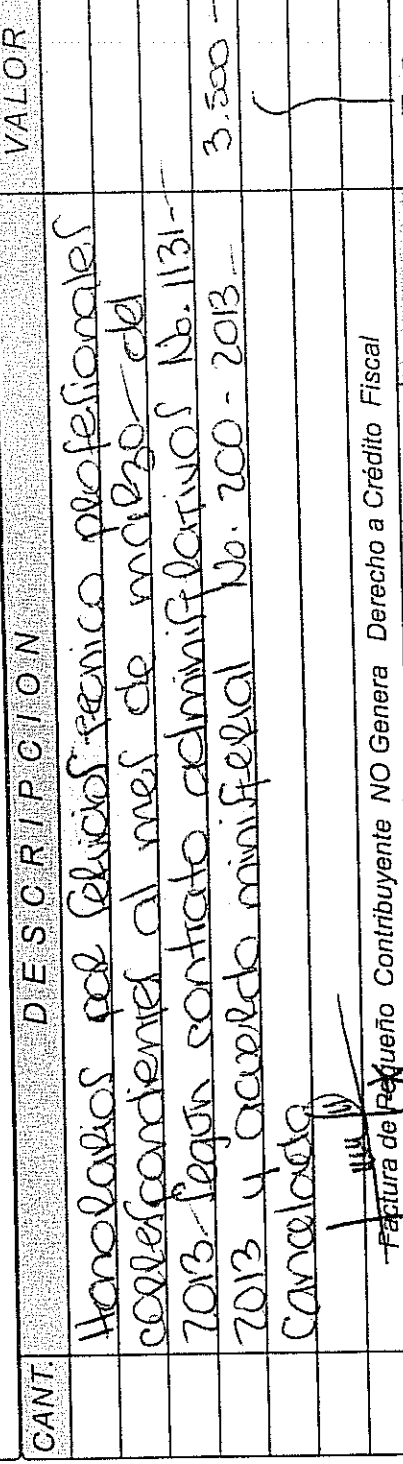 CANT. DESCRIPCION VALOR
Honorarios por servicios técnico profesionales
correspondientes al mes de marzo- del
2013- según contrato administrativos No. 1131-
2013 y acuerdo ministerial No. 200-2013- 3.500-
Cancelado
Factura de Pequeño Contribuyente NO Genera Derecho a Crédito Fiscal